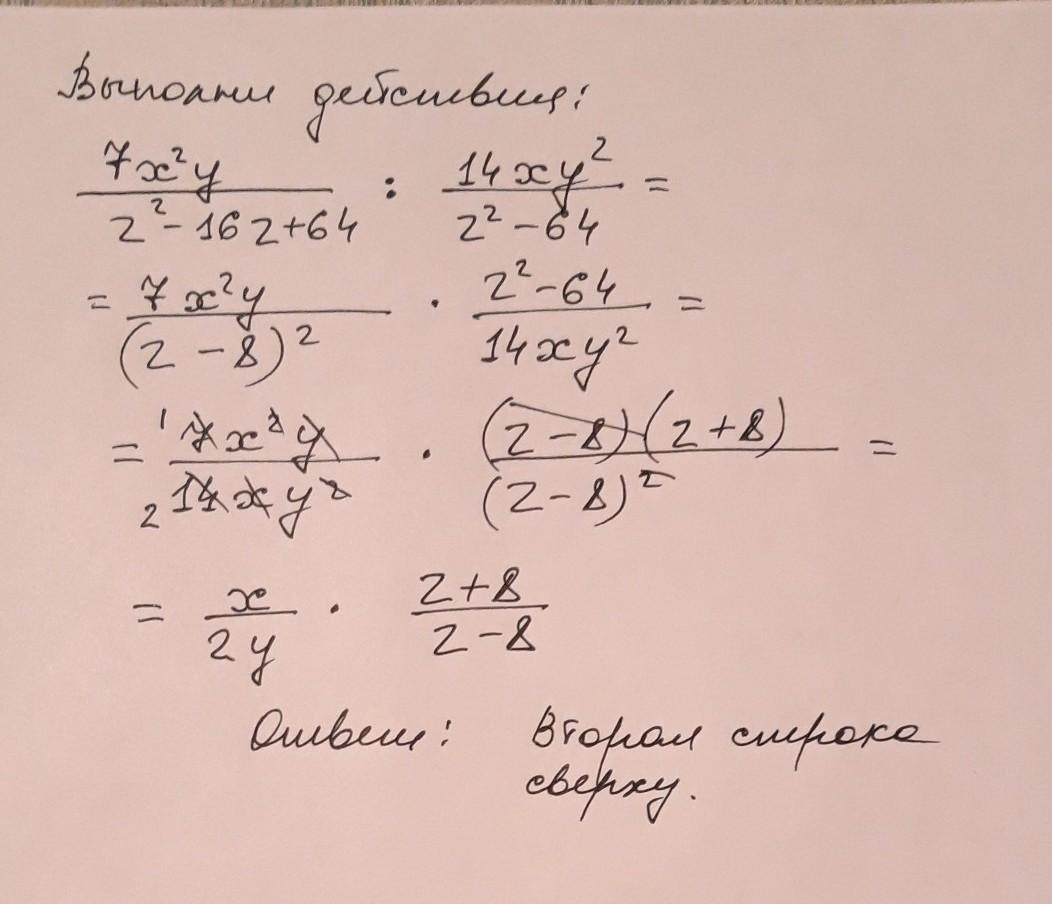 Выполни действия:
7x²y / z²-16z+64 : 14xy² / z²-64 =
= 7x²y / (z-8)² · z²-64 / 14xy² =
= ¹7x²y / ₂14xy² · (z-8)(z+8) / (z-8)² =
= x / 2y · z+8 / z-8
Ответ: Вторая строка
сверху.